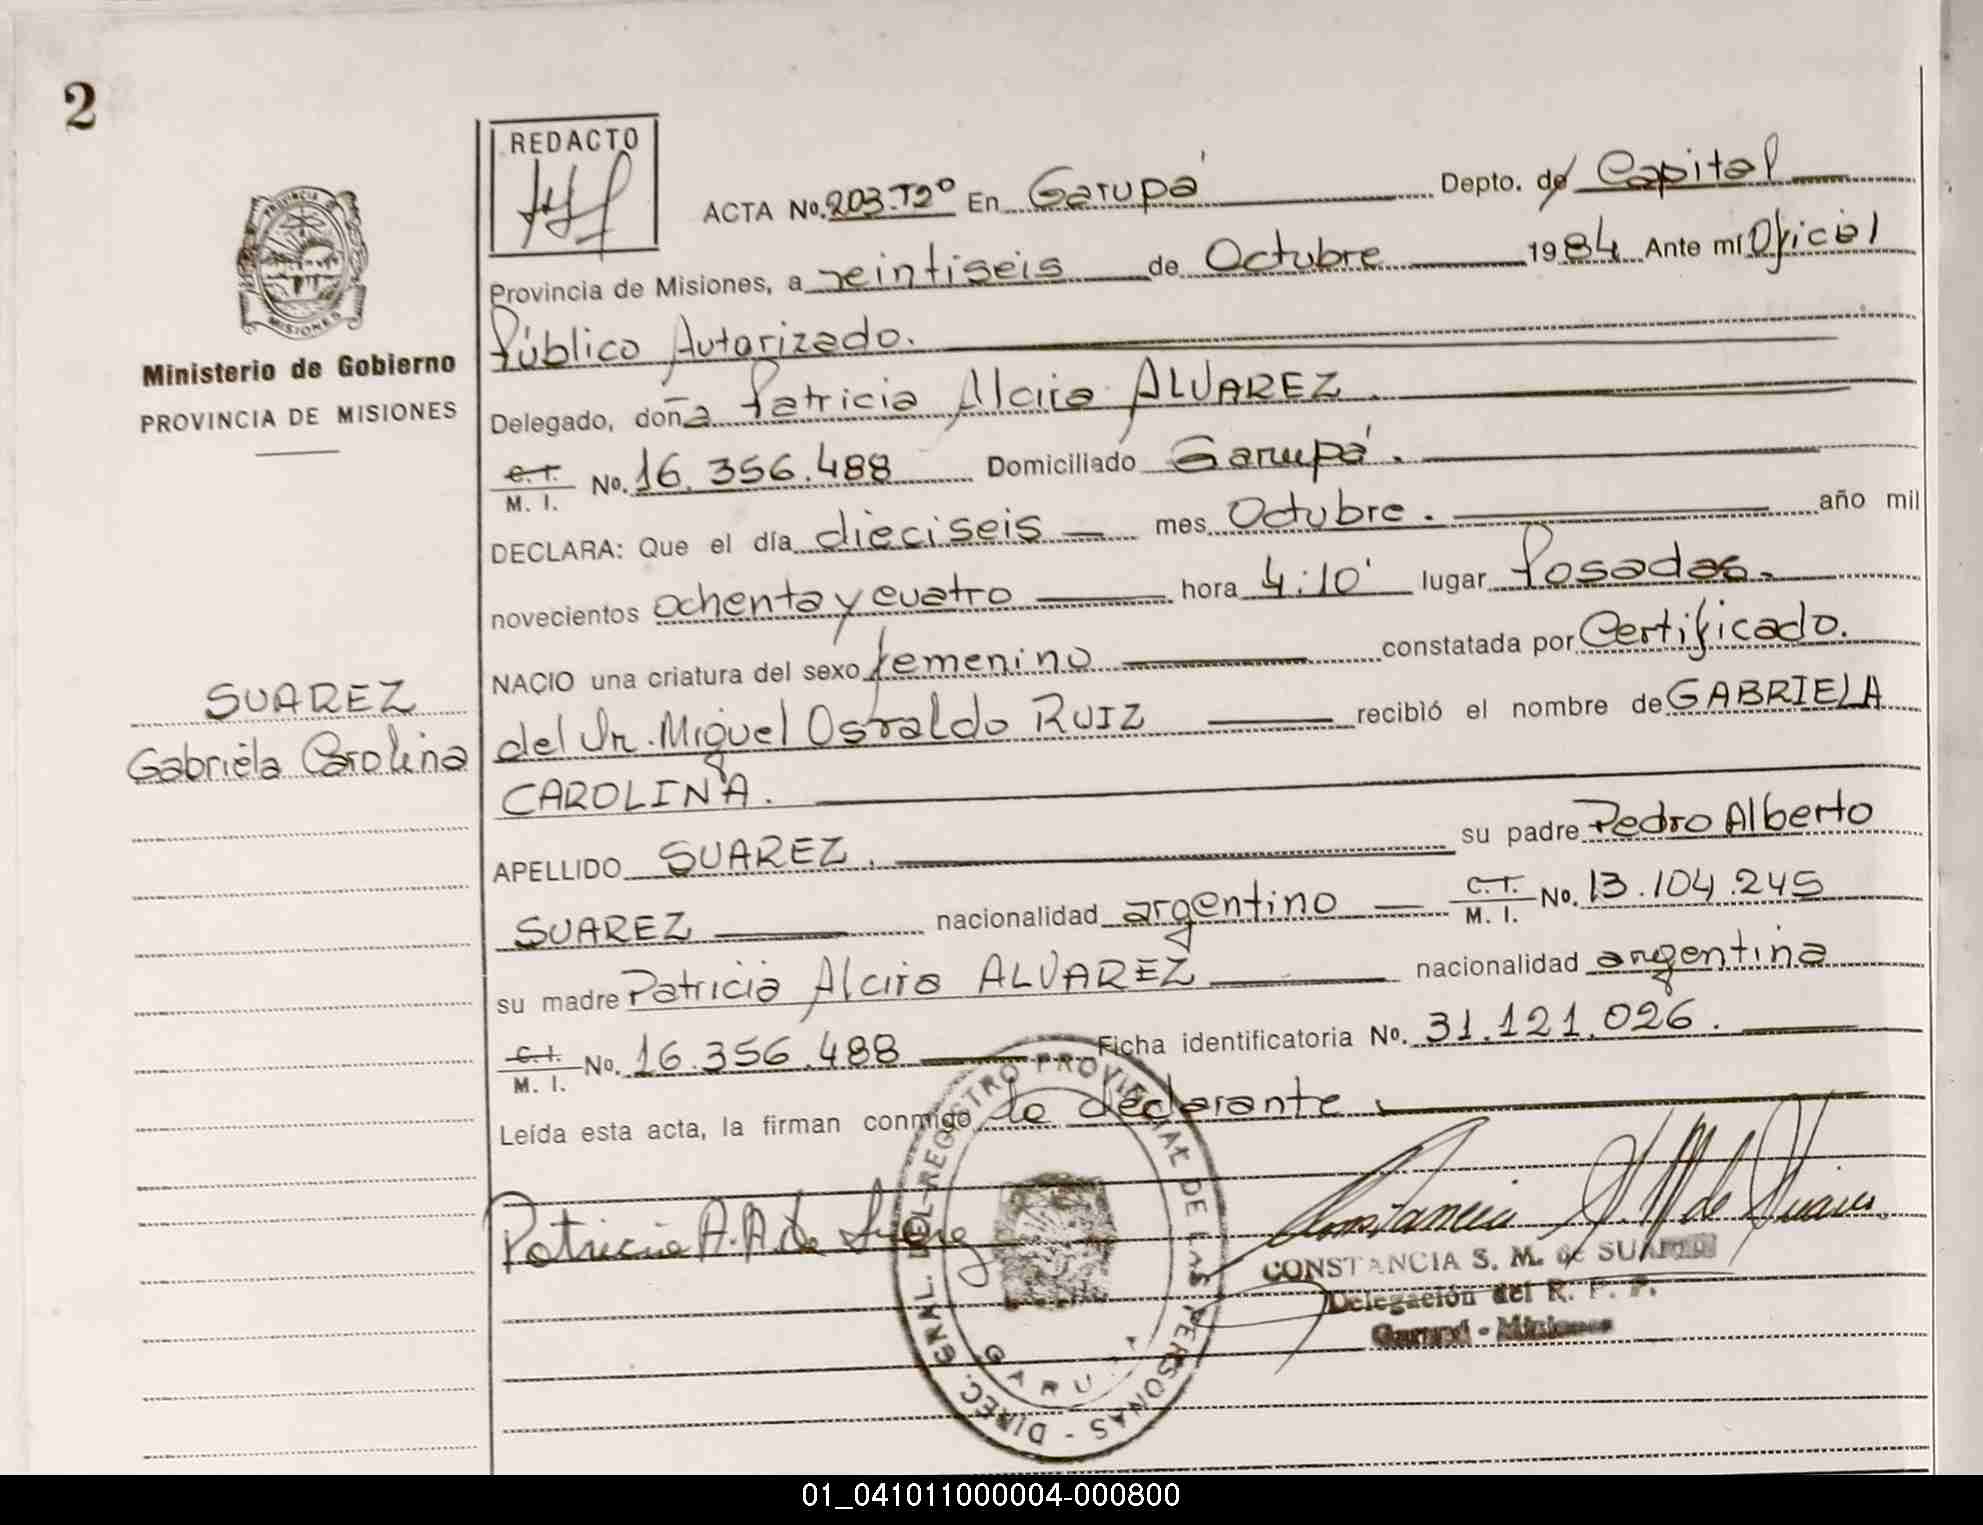 2
REDACTO
ACTA No. 203.T2º En Garupá Depto. de Capital
Provincia de Misiones, a veintiseis de Octubre 1984 Ante mí Oficial
Público Autorizado.
Ministerio de Gobierno
PROVINCIA DE MISIONES
PROVINCIA DE
MISIONES
Delegado, doña Patricia Alcira ALVAREZ.
C.I. M. I. No. 16.356.488 Domiciliado Garupá.
DECLARA: Que el día dieciseis mes Octubre. año mil
novecientos ochenta y cuatro hora 4:10' lugar Posadas.
NACIO una criatura del sexo femenino constatada por Certificado.
del Dr. Miguel Osvaldo RUIZ recibió el nombre de GABRIELA
CAROLINA.
SUAREZ
Gabriela Carolina
APELLIDO SUAREZ. su padre Pedro Alberto
SUAREZ nacionalidad argentino C.I. M. I. No. 13.104.245
su madre Patricia Alcira ALVAREZ nacionalidad argentina
C.I. M. I. No. 16.356.488 Ficha identificatoria No. 31.121.026.
Leída esta acta, la firman conmigo la declarante
Patricia A. A de Suarez
DIREC. GRAL. DEL REGISTRO PROVINCIAL DE LAS PERSONAS -
Constancia S. M de Suárez
CONSTANCIA S. M. de SUAREZ
Delegación del R. P. P.
Garupá - Misiones
01_041011000004-000800